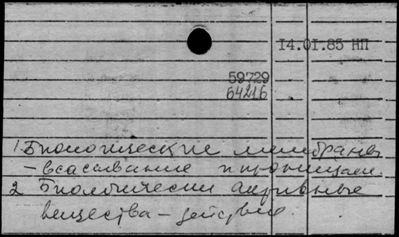 14.01.85 НП
59729
64216
1. Биологические мембраны
- всасывание
2 Биологически активные
вещества - действие